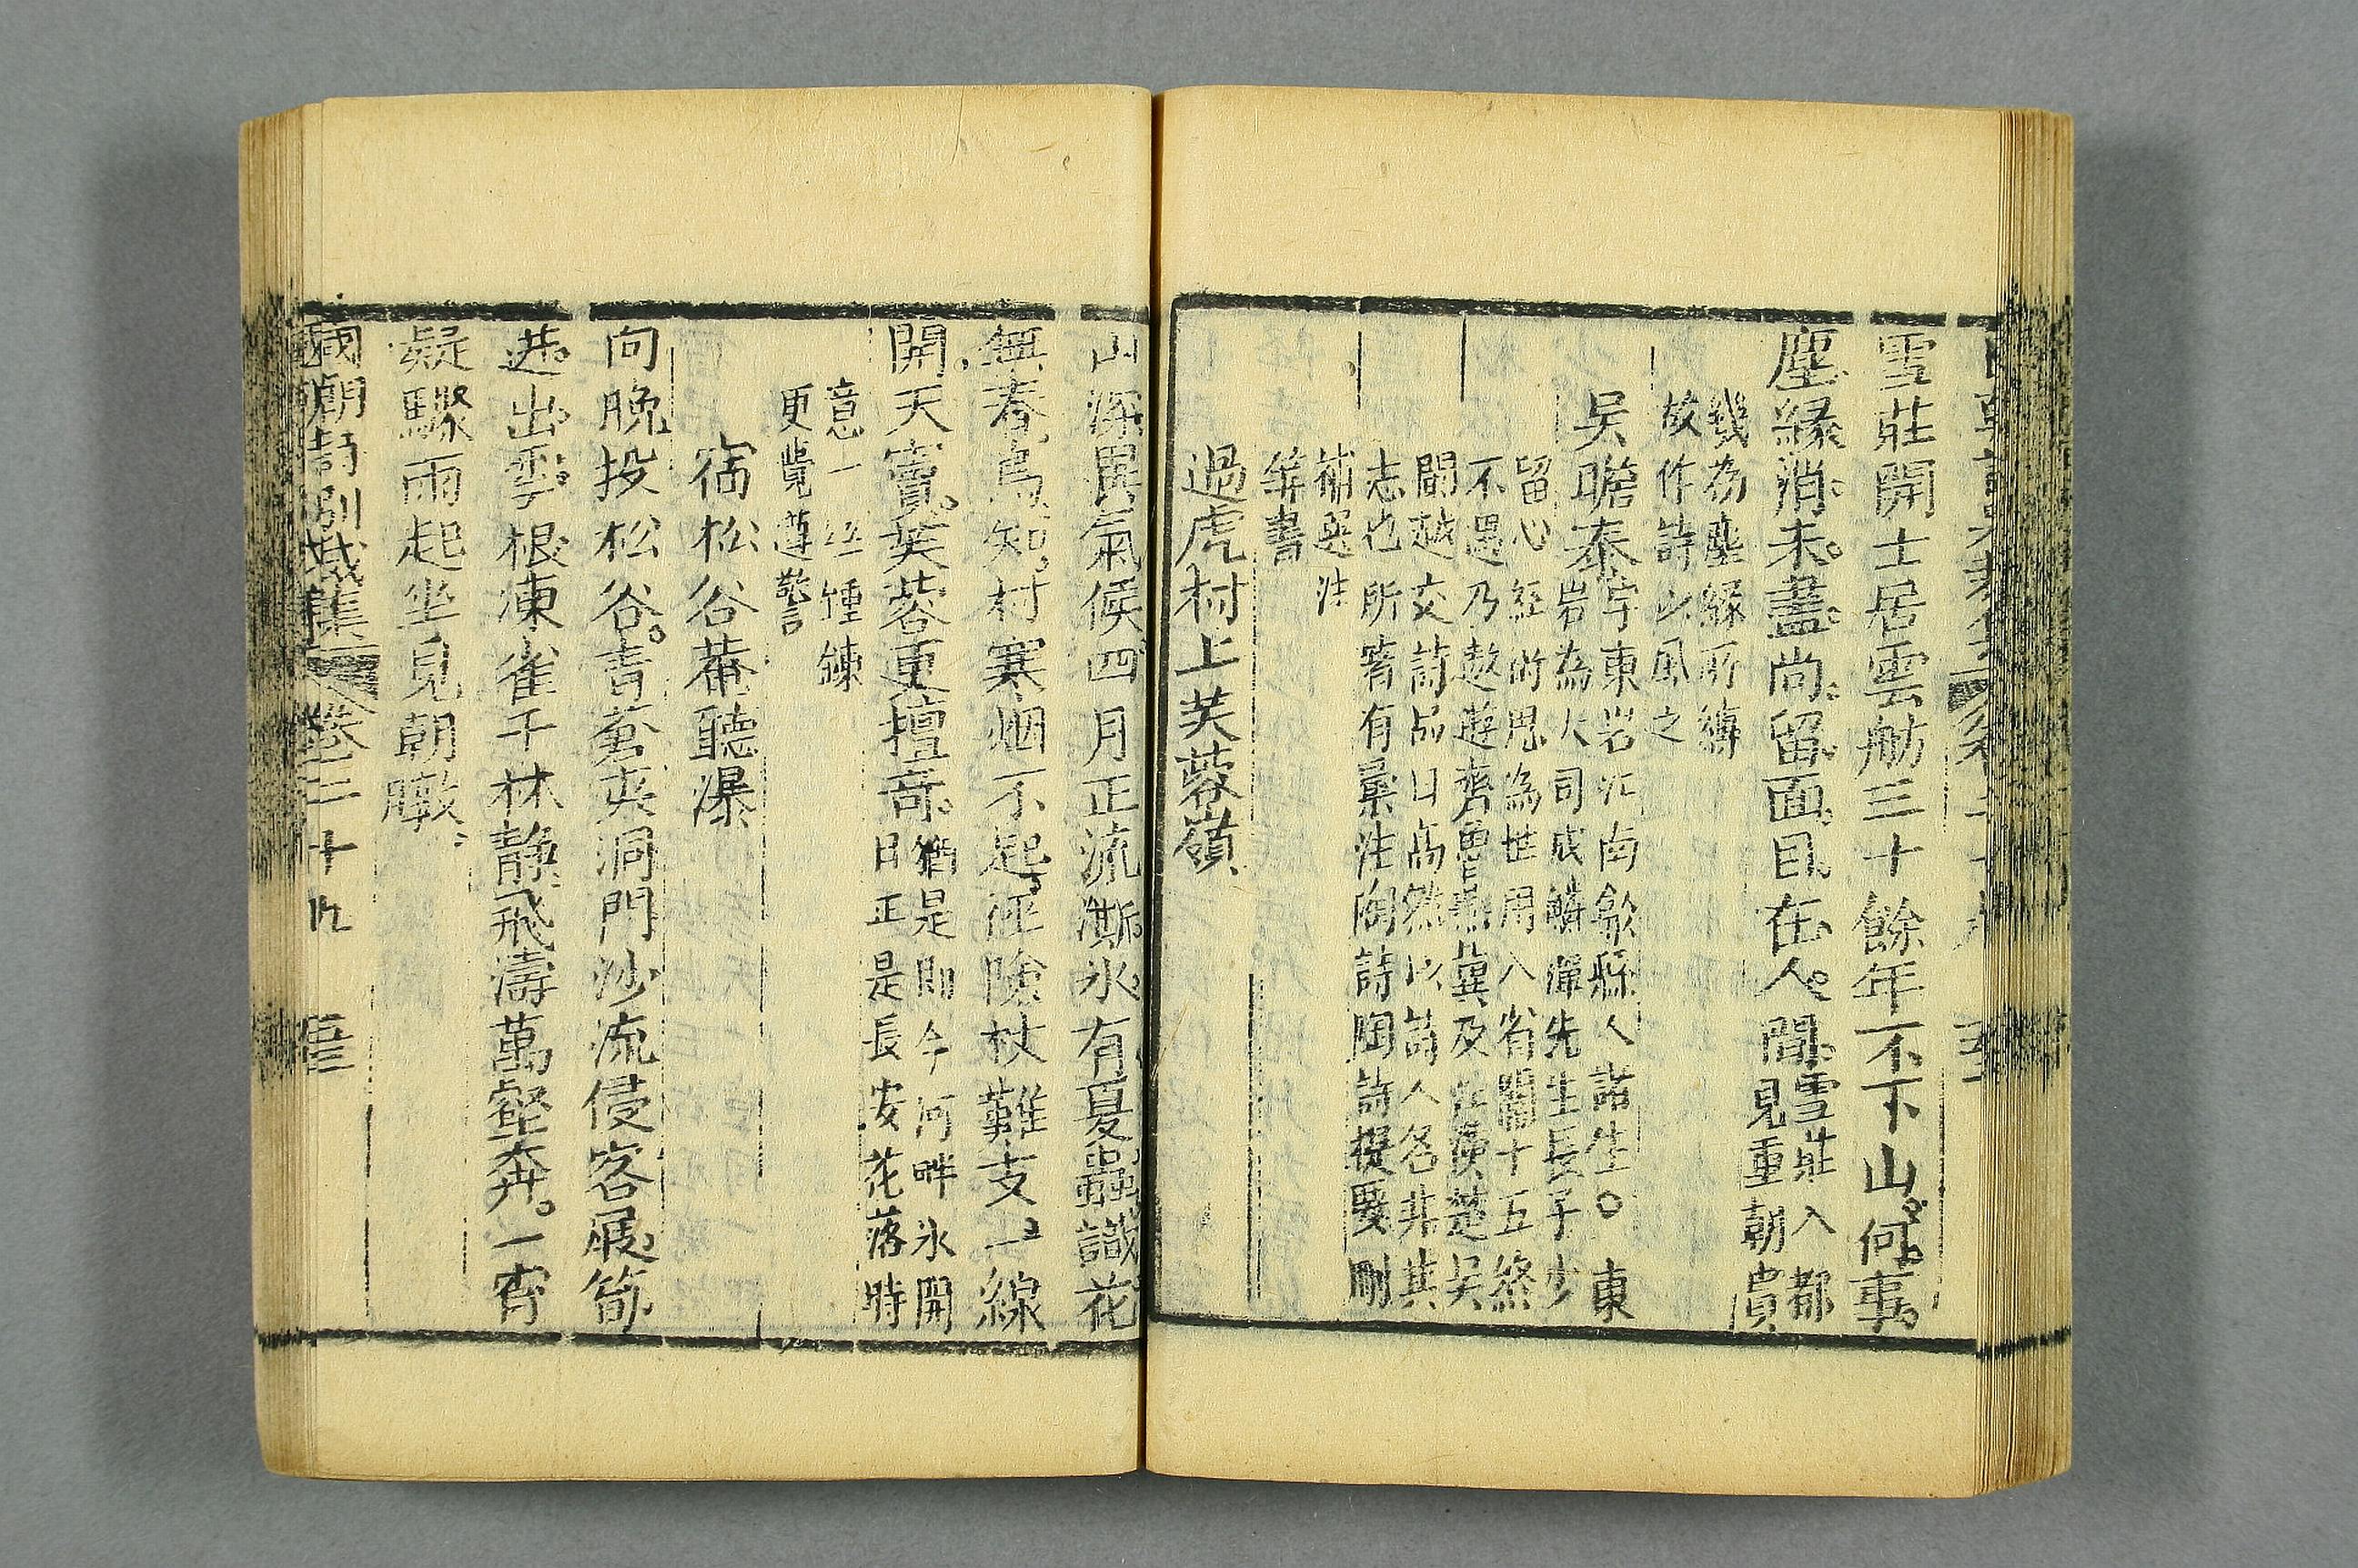 雪莊開士居雲舫三十餘年不下山何事
塵緣消未盡尚留面目在人間雪莊入都
見重朝貴
幾為塵緣所縛
故作詩以風之
吳瞻泰字東岩江南歙縣人諸生○東
岩為大司成鱗潭先生長子少
留心經術思為世用入省闈十五終
不遇乃遨遊齊魯燕冀及江漢楚吳
閩越交詩品日高然以詩人名非其
志也所著有彙注陶詩陶詩提要刪
補選注
等書
過虎村上芙蓉嶺
山深異氣候四月正流澌氷有夏蟲識花
無春鳥知村寒烟不起徑險杖難支一線
開天竇芙蓉更擅奇猶是則今河畔氷開
日正是長安花落時
意一經鍾鍊
更覺遒警
宿松谷菴聽瀑
向晚投松谷青蒼夾洞門沙流侵客屐筍
迸出雲根凍雀千林靜飛濤萬壑奔一宵
疑驟雨起坐見朝暾
國朝詩別裁集 卷二十九